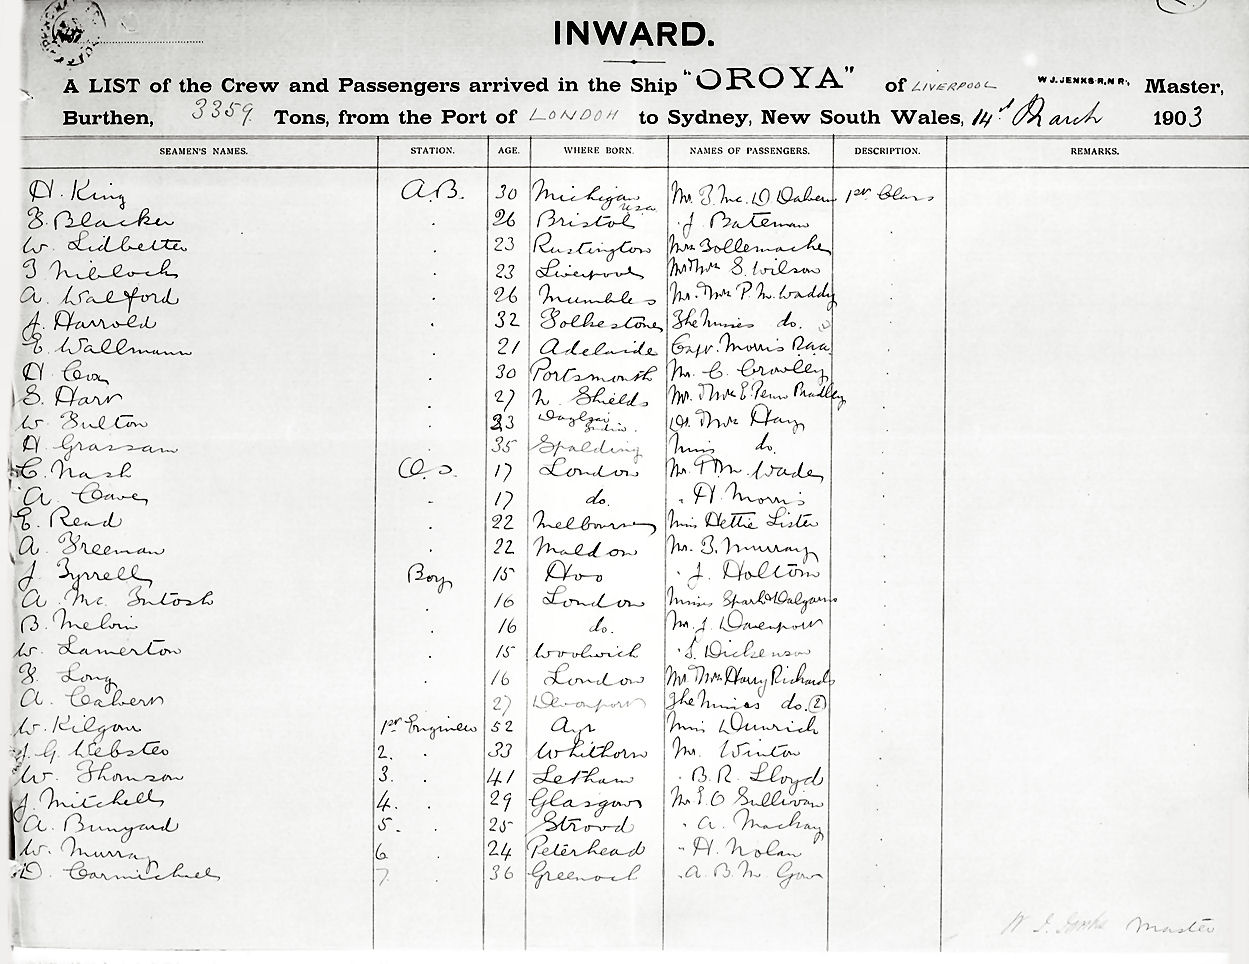 INWARD.
A LIST of the Crew and Passengers arrived in the Ship "OROYA" of LIVERPOOL W.J. JENKS R.N.R., Master,
Burthen, 3359 Tons, from the Port of LONDON to Sydney, New South Wales, 14th March 1903
SEAMEN'S NAMES. STATION. AGE. WHERE BORN. NAMES OF PASSENGERS. DESCRIPTION. REMARKS.
H. King A.B. 30 Michigan U.S.A. Mr. T. Mc. D 1st Class
F. Blacker . 26 Bristol " J. Bateman .
W. Lidbetter . 23 Rustington Mrs Tollemache .
T. Niblock . 23 Liverpool Mr & Mrs S. Wilson .
A. Walford . 26 Mumbles Mr. Mrs P. M. Waddy .
J. Harrold . 32 Folkestone The Misses do. .
E. Wallmann . 21 Adelaide Capt. Morris R.a.a. .
H. Cox . 30 Portsmouth Mr. C. Crowley .
S. Hart . 27 N. Shields Mr. Mrs E. Penn Bradley .
W. Fulton . 23 Dr. Mrs Hay .
H. Grassam . 35 Spalding Miss do. .
C. Nash O.S. 17 London Mr. Wade .
A. Cave . 17 do. " H Morris .
E. Read . 22 Melbourne Miss Hettie Lister .
A. Freeman . 22 Maldon Mr. T. Murray .
J. Tyrrell Boy 15 Hoo " J. Holtom .
A. Mc. Intosh . 16 London Misses Spark & Dalgarno .
B. Melvin . 16 do. Mr. J. Davenport .
W. Lamerton . 15 Woolwich " S. Dickenson .
F. Long . 16 London Mr. Mrs Harry Richards .
A. Calvert . 27 Devonport The Misses do. (2) .
W. Kilgour 1st Engineer 52 Ayr Miss .
J. G. Webster 2. . 33 Whithorn Mr. Winton .
W. Thomson 3. . 41 Letham " B. R. Lloyd .
J. Mitchell 4. . 29 Glasgow Mr E. O Sullivan .
A. Bunyard 5. . 25 Strood " A. Mackay .
W. Murray 6 . 24 Peterhead " H. Nolan .
D. Carmichael 7 . 36 Greenock " A. B. M. Gow .
W J. Jenks Master